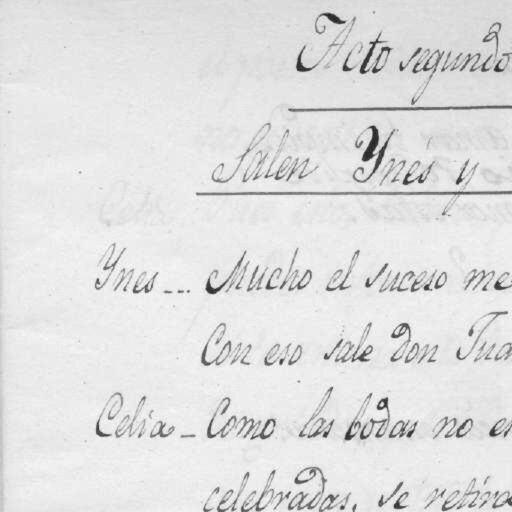 Acto segundo
Salen Ynes y
Ynes --- Mucho el suceso me
Con eso sale don Jua
Celia - Como las bodas no es
celebradas, se retira